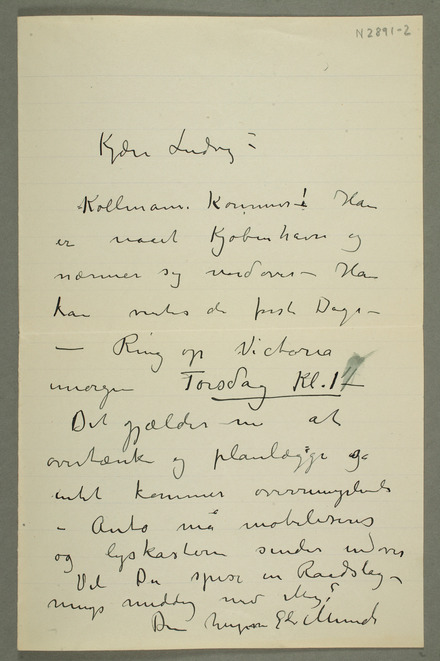 N2891-2
Kjære Ludvig –
Kollmann. Kommer! Han
er naaet Kjøbenhavn og
nærmer sig nordover – Han
kan ventes de første Dage –
– Ring op Victoria
imorgen Torsdag Kl. 1
Det gjælder nu at
overtænke og planlægge og
intet kommer overrumplende
– Auto må mobiliseres
og lyskastern sendes
Vil Du spise en Raadslag-
nings middag med Mig?
Din Edv Munch